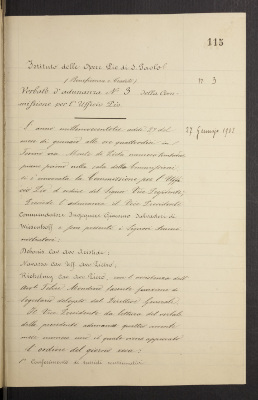 115
Istituto delle Opere Pie di S. Paolo
(Beneficenza e Credito)
N. 3
Verbale d'adunanza N. 3 della Com-
missione per l'Ufficio Pio
L'anno millenovecentodue addì 27 del 27 Gennaio 1902
mese di gennaio alle ore quattordici in
Torino via Monte di Pietà numero
primo piano nella sala delle
si è adunata la Commissione per l'Uffi-
cio Pio d'ordine del Signor Vice Presidente;
Presiede l'adunanza il Vice Presidente
Commendatore Ingegnere Salvadori di
Wiesenhoff e sono presenti i Signori Ammi-
nistratori;
cav. avv.
cav. avv.
cav. con l'assistenza dell'
Avv. facente funzione di
Segretario delegato dal Direttore Generale.
Il Vice Presidente dà lettura del verbale
della precedente adunanza quattro corrente
mese numero uno il quale viene approvato
L'ordine del giorno reca:
1° Conferimento di sussidi